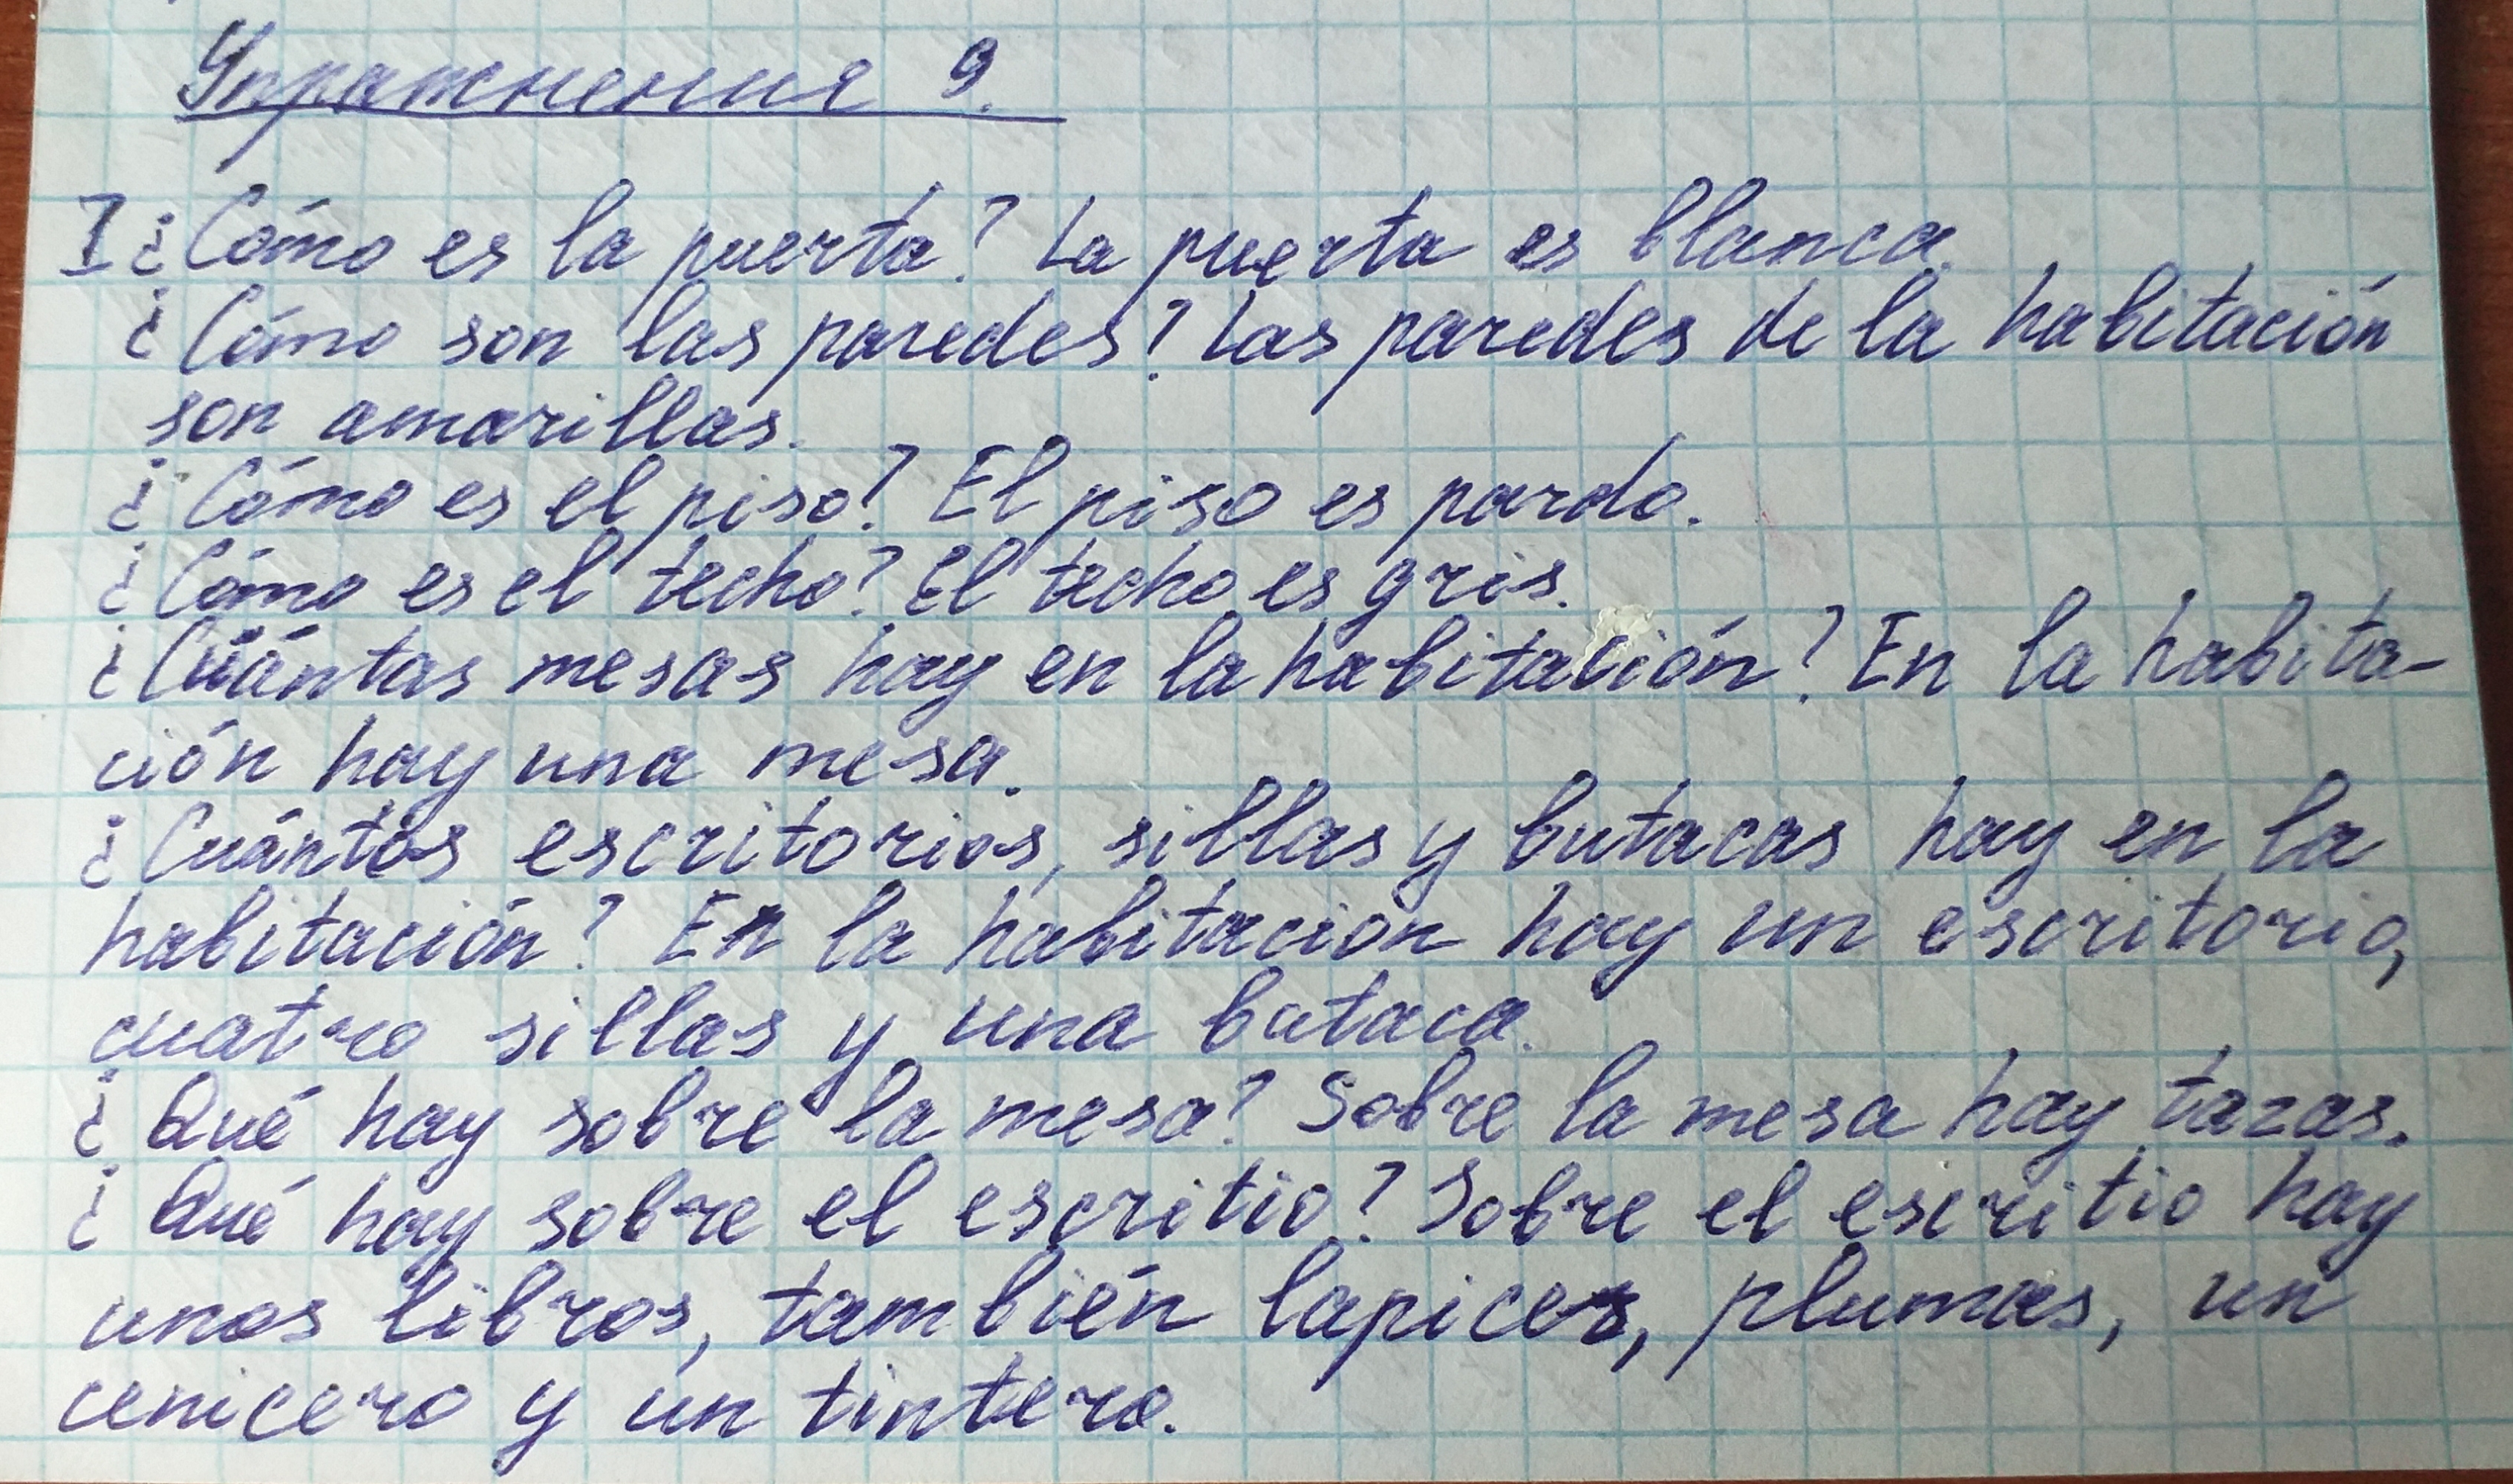 Упражнение 9.
I ¿Cómo es la puerta? La puerta es blanca.
¿Cómo son las paredes? Las paredes de la habitación
son amarillas.
¿Cómo es el piso? El piso es pardo.
¿Cómo es el techo? El techo es gris.
¿Cuántas mesas hay en la habitación? En la habita-
ción hay una mesa.
¿Cuántos escritorios, sillas y butacas hay en la
habitación? En la habitación hay un escritorio,
cuatro sillas y una butaca.
¿Qué hay sobre la mesa? Sobre la mesa hay tazas.
¿Qué hay sobre el escritio? Sobre el escritio hay
unos libros, también lapices, plumas, un
cenicero y un tintero.